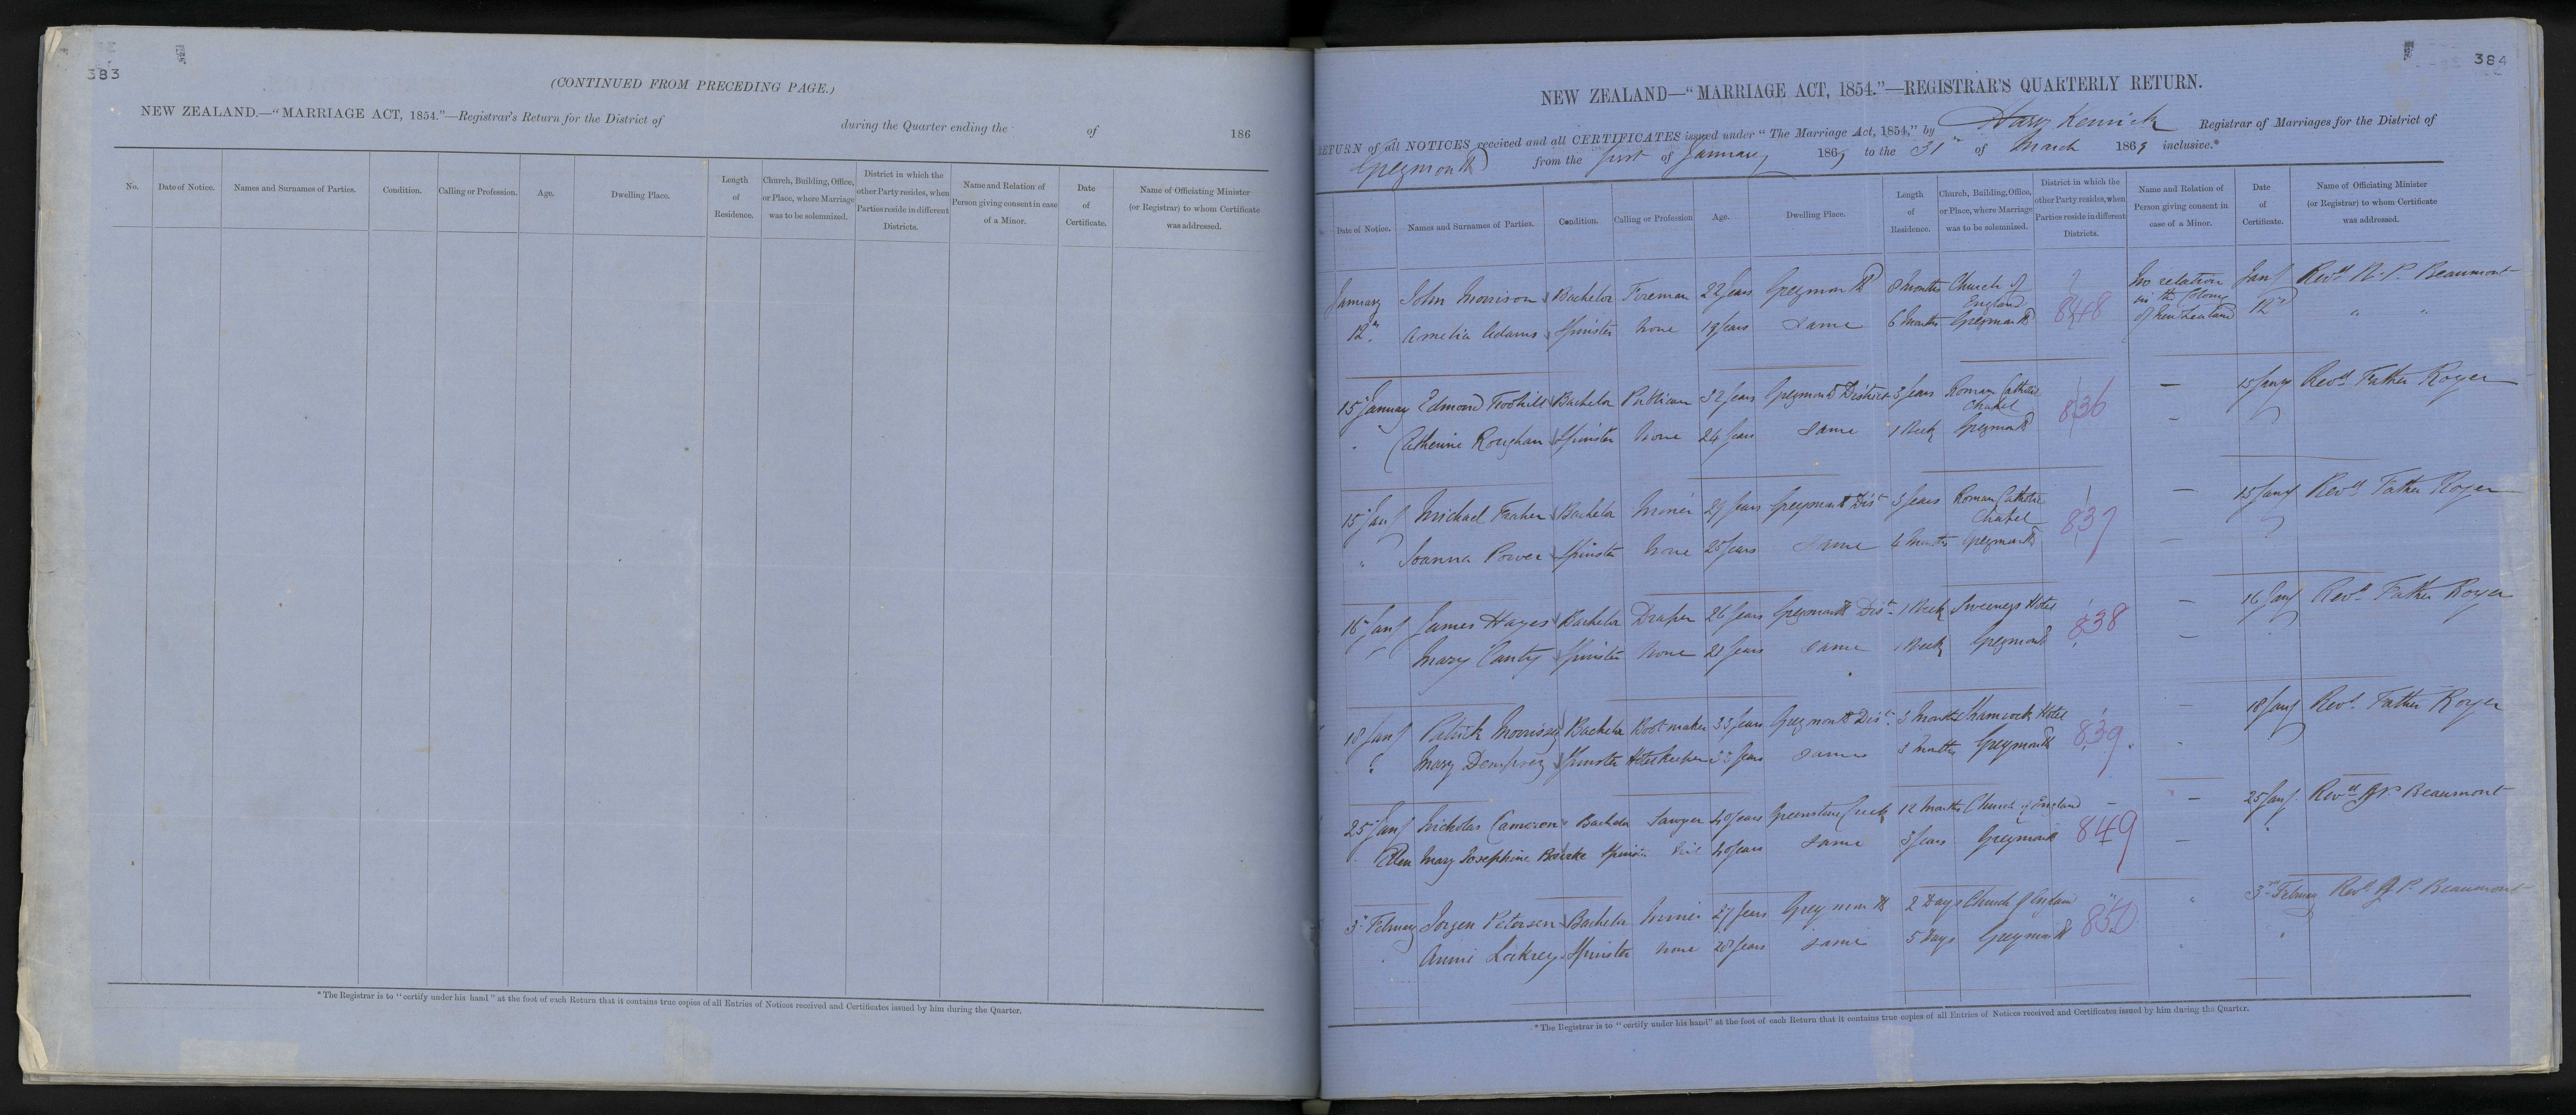 383
(CONTINUED FROM PRECEDING PAGE.)
NEW ZEALAND.—"MARRIAGE ACT, 1854."—Registrar's Return for the District of during the Quarter ending the of 186
No. Date of Notice. Names and Surnames of Parties. Condition. Calling or Profession. Age. Dwelling Place. Length of Residence. Church, Building, Office, or Place, where Marriage was to be solemnized. District in which the other Party resides, when Parties reside in different Districts. Name and Relation of Person giving consent in case of a Minor. Date of Certificate. Name of Officiating Minister (or Registrar) to whom Certificate was addressed.
*The Registrar is to "certify under his hand" at the foot of each Return that it contains true copies of all Entries of Notices received and Certificates issued by him during the Quarter.
384
NEW ZEALAND—"MARRIAGE ACT, 1854."—REGISTRAR'S QUARTERLY RETURN.
RETURN of all NOTICES received and all CERTIFICATES issued under "The Marriage Act, 1854," by Harry Kenrick Registrar of Marriages for the District of
Greymouth from the first of January 1869 to the 31st of March 1869 inclusive.*
Date of Notice. Names and Surnames of Parties. Condition. Calling or Profession Age. Dwelling Place. Length of Residence. Church, Building, Office, or Place, where Marriage was to be solemnized. District in which the other Party resides, when Parties reside in different Districts. Name and Relation of Person giving consent in case of a Minor. Date of Certificate. Name of Officiating Minister (or Registrar) to whom Certificate was addressed.
January John Morrison Bachelor Foreman 22 Years Greymouth 8 Months Church of England 848 No relation in the Colony of New Zealand Jany Revd Beaumont
12th Amelia Adams Spinster None 19 Years Same 6 Months Greymouth 12th " "
15 January Edmond Bachelor Publican 32 Years Greymouth District 3 Years Roman Catholic Chapel 836 — 15 Jany Revd Father Royer
" Catherine Roughan Spinster None 24 Years Same 1 Week Greymouth —
15 Jany Michael Fraher Bachelor Miner 27 Years Greymouth Dist 3 Years Roman Catholic Chapel 837 — 15 Jany Revd Father Royer
" Joanna Power Spinster None 25 Years Same 4 Months Greymouth —
16 Jany James Hayes Bachelor Draper 26 Years Greymouth Dist 1 Week Sweeneys Hotel 838 — 16 Jany Revd Father Royer
" Mary Canty Spinster None 21 Years Same 1 Week Greymouth —
18 Jany Patrick Morrissey Bachelor Bootmaker 33 Years Greymouth Dist 3 Months Shamrock Hotel 839 - 18 Jany Revd Father Royer
" Mary Dempsey Spinster Hotelkeeper Years Same 3 Months Greymouth -
25 Jany Nicholas Cameron Bachelor Sawyer 40 Years Greenstone Creek 12 Months Church of England - 849 — 25 Jany Revd Beaumont
Ellen Mary Josephine Bourke Spinster 40 Years Same 3 Years Greymouth —
3 February Jorgen Petersen Bachelor Miner 27 Years Greymouth 2 Days Church of England 850 " 3rd February Revd Beaumont
Annie Spinster None 28 Years Same 5 Days Greymouth "
*The Registrar is to "certify under his hand" at the foot of each Return that it contains true copies of all Entries of Notices received and Certificates issued by him during the Quarter.